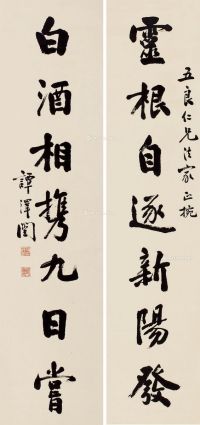 五良仁兄法家正捥
靈根自逐新陽發
白酒相携九日嘗
譚澤闓